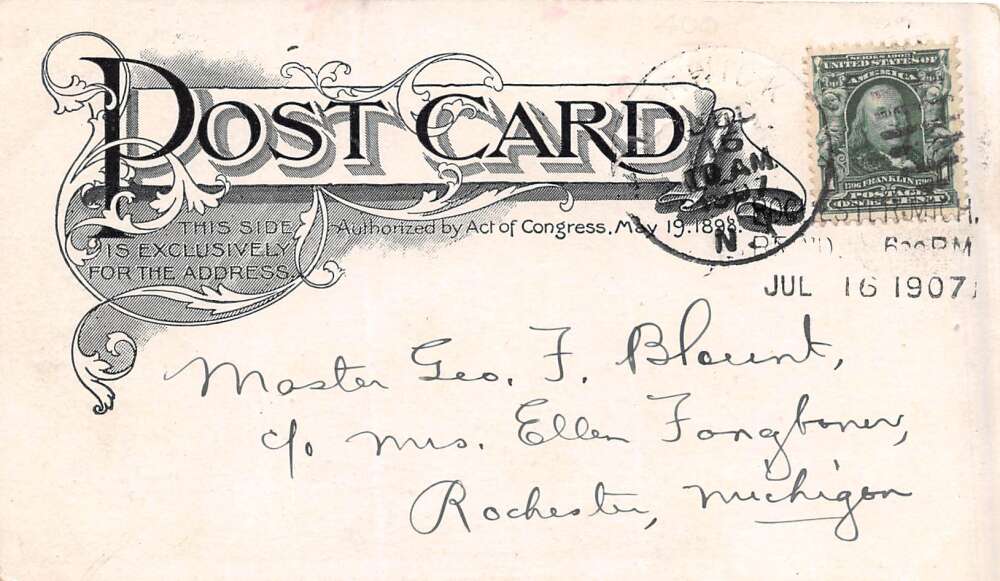 POST CARD
THIS SIDE
IS EXCLUSIVELY
FOR THE ADDRESS.
Authorized by Act of Congress, May 19. 1898.
SERIES 1902
UNITED STATES OF
AMERICA
FRANKLIN
POSTAGE
ONE CENT
JUL
15
10 AM
N
REC'D 6:00 PM
JUL 16 1907
Master Geo. F. Blount,
c/o Mrs. Ellen Fongboner,
Rochester, Michigan